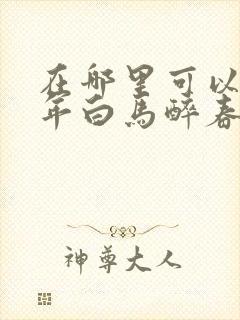 在哪里可以
年白马醉春
神尊大人